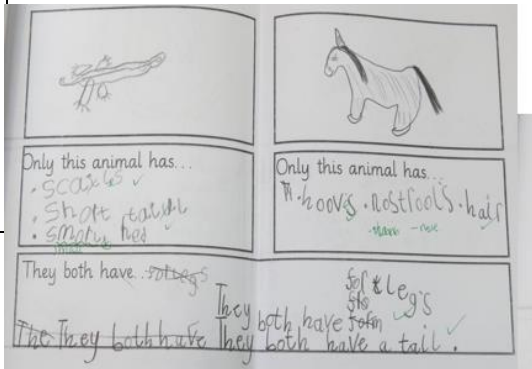 Only this animal has...
• scails
• Short taiul
• smorl hed
Only this animal has...
• hoovs • nostrools • hair
They both have...
legs
They both have
The They both have They both have a tail.